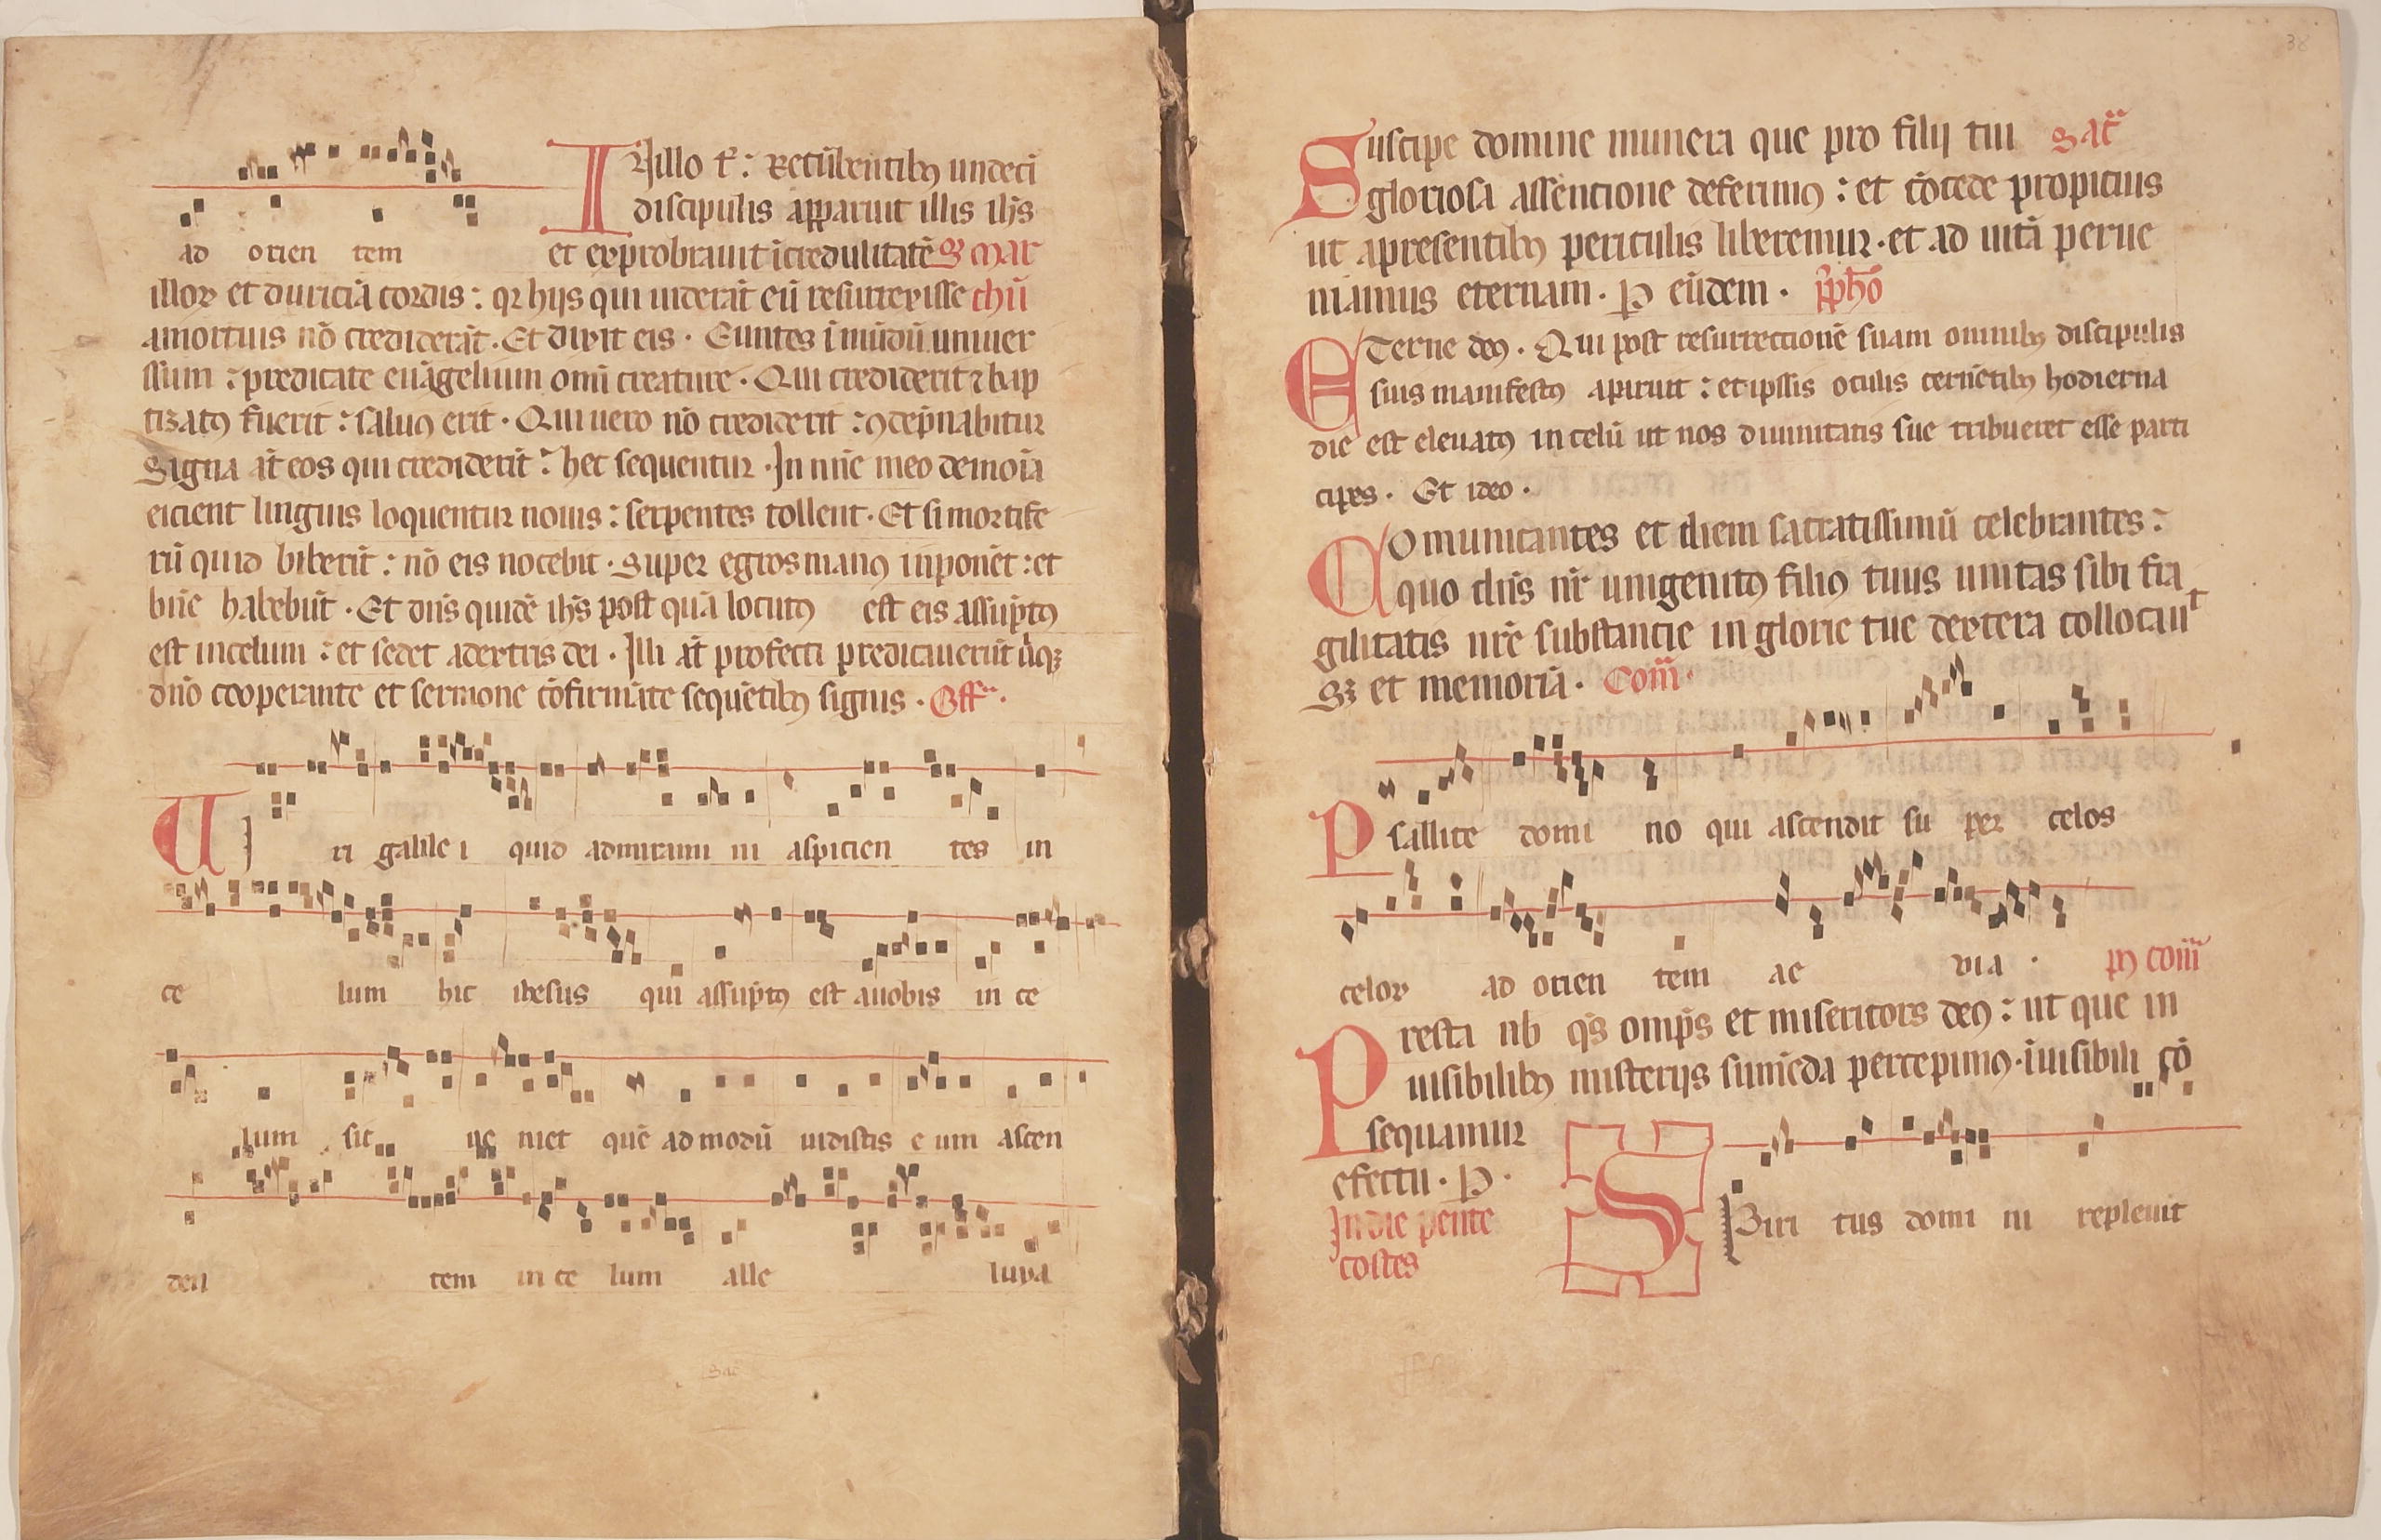 IN illo t̄: Recūbentibꝯ undeci
discipulis apparuit illis ih̄s
ad orien tem
et exprobrauit īcredulitatē S mar
illoꝝ et duriciā cordis: qꝛ hijs qui uiderāt eū resurrexisse chū
amortuis nō crediderāt. Et dixit eis. Euntes ī mūdū uniuer
ssum: predicate euāgelium omī creature. Qui crediderit ⁊ bap
tizatꝯ fuerit: saluꝯ erit. Qui uero nō crediderit: ꝯdēpnabitur
Signa āt eos qui crediderīt: hec sequentur. In nīe meo demoīa
eicient linguis loquentur nouis: serpentes tollent. Et si mortife
rū quid biberīt: nō eis nocebit. Super egros manꝯ inponēt: et
bn̄e habebūt. Et dn̄s quidē ih̄s post quā locutꝯ est eis assūptꝯ
est incelum: et sedet adextris dei. Illi āt profecti predicauerūt ūqꝫ
dn̄o cooperante et sermone cōfirmāte sequētibꝯ signis. Off̄.
UI ri galile i quid admirami ni aspicien tes in
ce lum hic ihesus qui assūptꝯ est auobis in ce
lum sic ue niet quē ad modū uidistis e um ascen
den tem in ce lum alle luya
38
Suscipe domine munera que pro filij tui Sac̄
gloriosa assencione deferimꝯ: et cōcede propicius
ut apresentibꝯ periculis liberemur. et ad uitā perue
niamus eternam. P eūdem. p̄pho
ETerne deꝯ. Qui post resurrectionē suam omnibꝯ discipulis
suis manifestꝯ aparuit: et ipssis oculis cernētibꝯ hodierna
die est eleuatꝯ in celū ut nos diuinitatis sue tribueret esse parti
cipes. Et ideo.
COmunicantes et diem sacratissimū celebrantes:
quo dn̄s nr̄ unigenitꝯ filiꝯ tuus unitas sibi fra
gilitatis nr̄e substancie in glorie tue dextera collocauᵗ
Sꝫ et memoriā. Com̄
Psallite domi no qui ascendit su per celos
celoꝝ ad orien tem ae via. pꝯ com̄
Presta nb̄ q̄s omp̄s et misericors deꝯ: ut que in
uisibilibꝯ misterijs sumēda percepimꝯ. īuisibili cō
sequamur
efectu. P.
In die pente
costes
SPiri tus domi ni repleuit